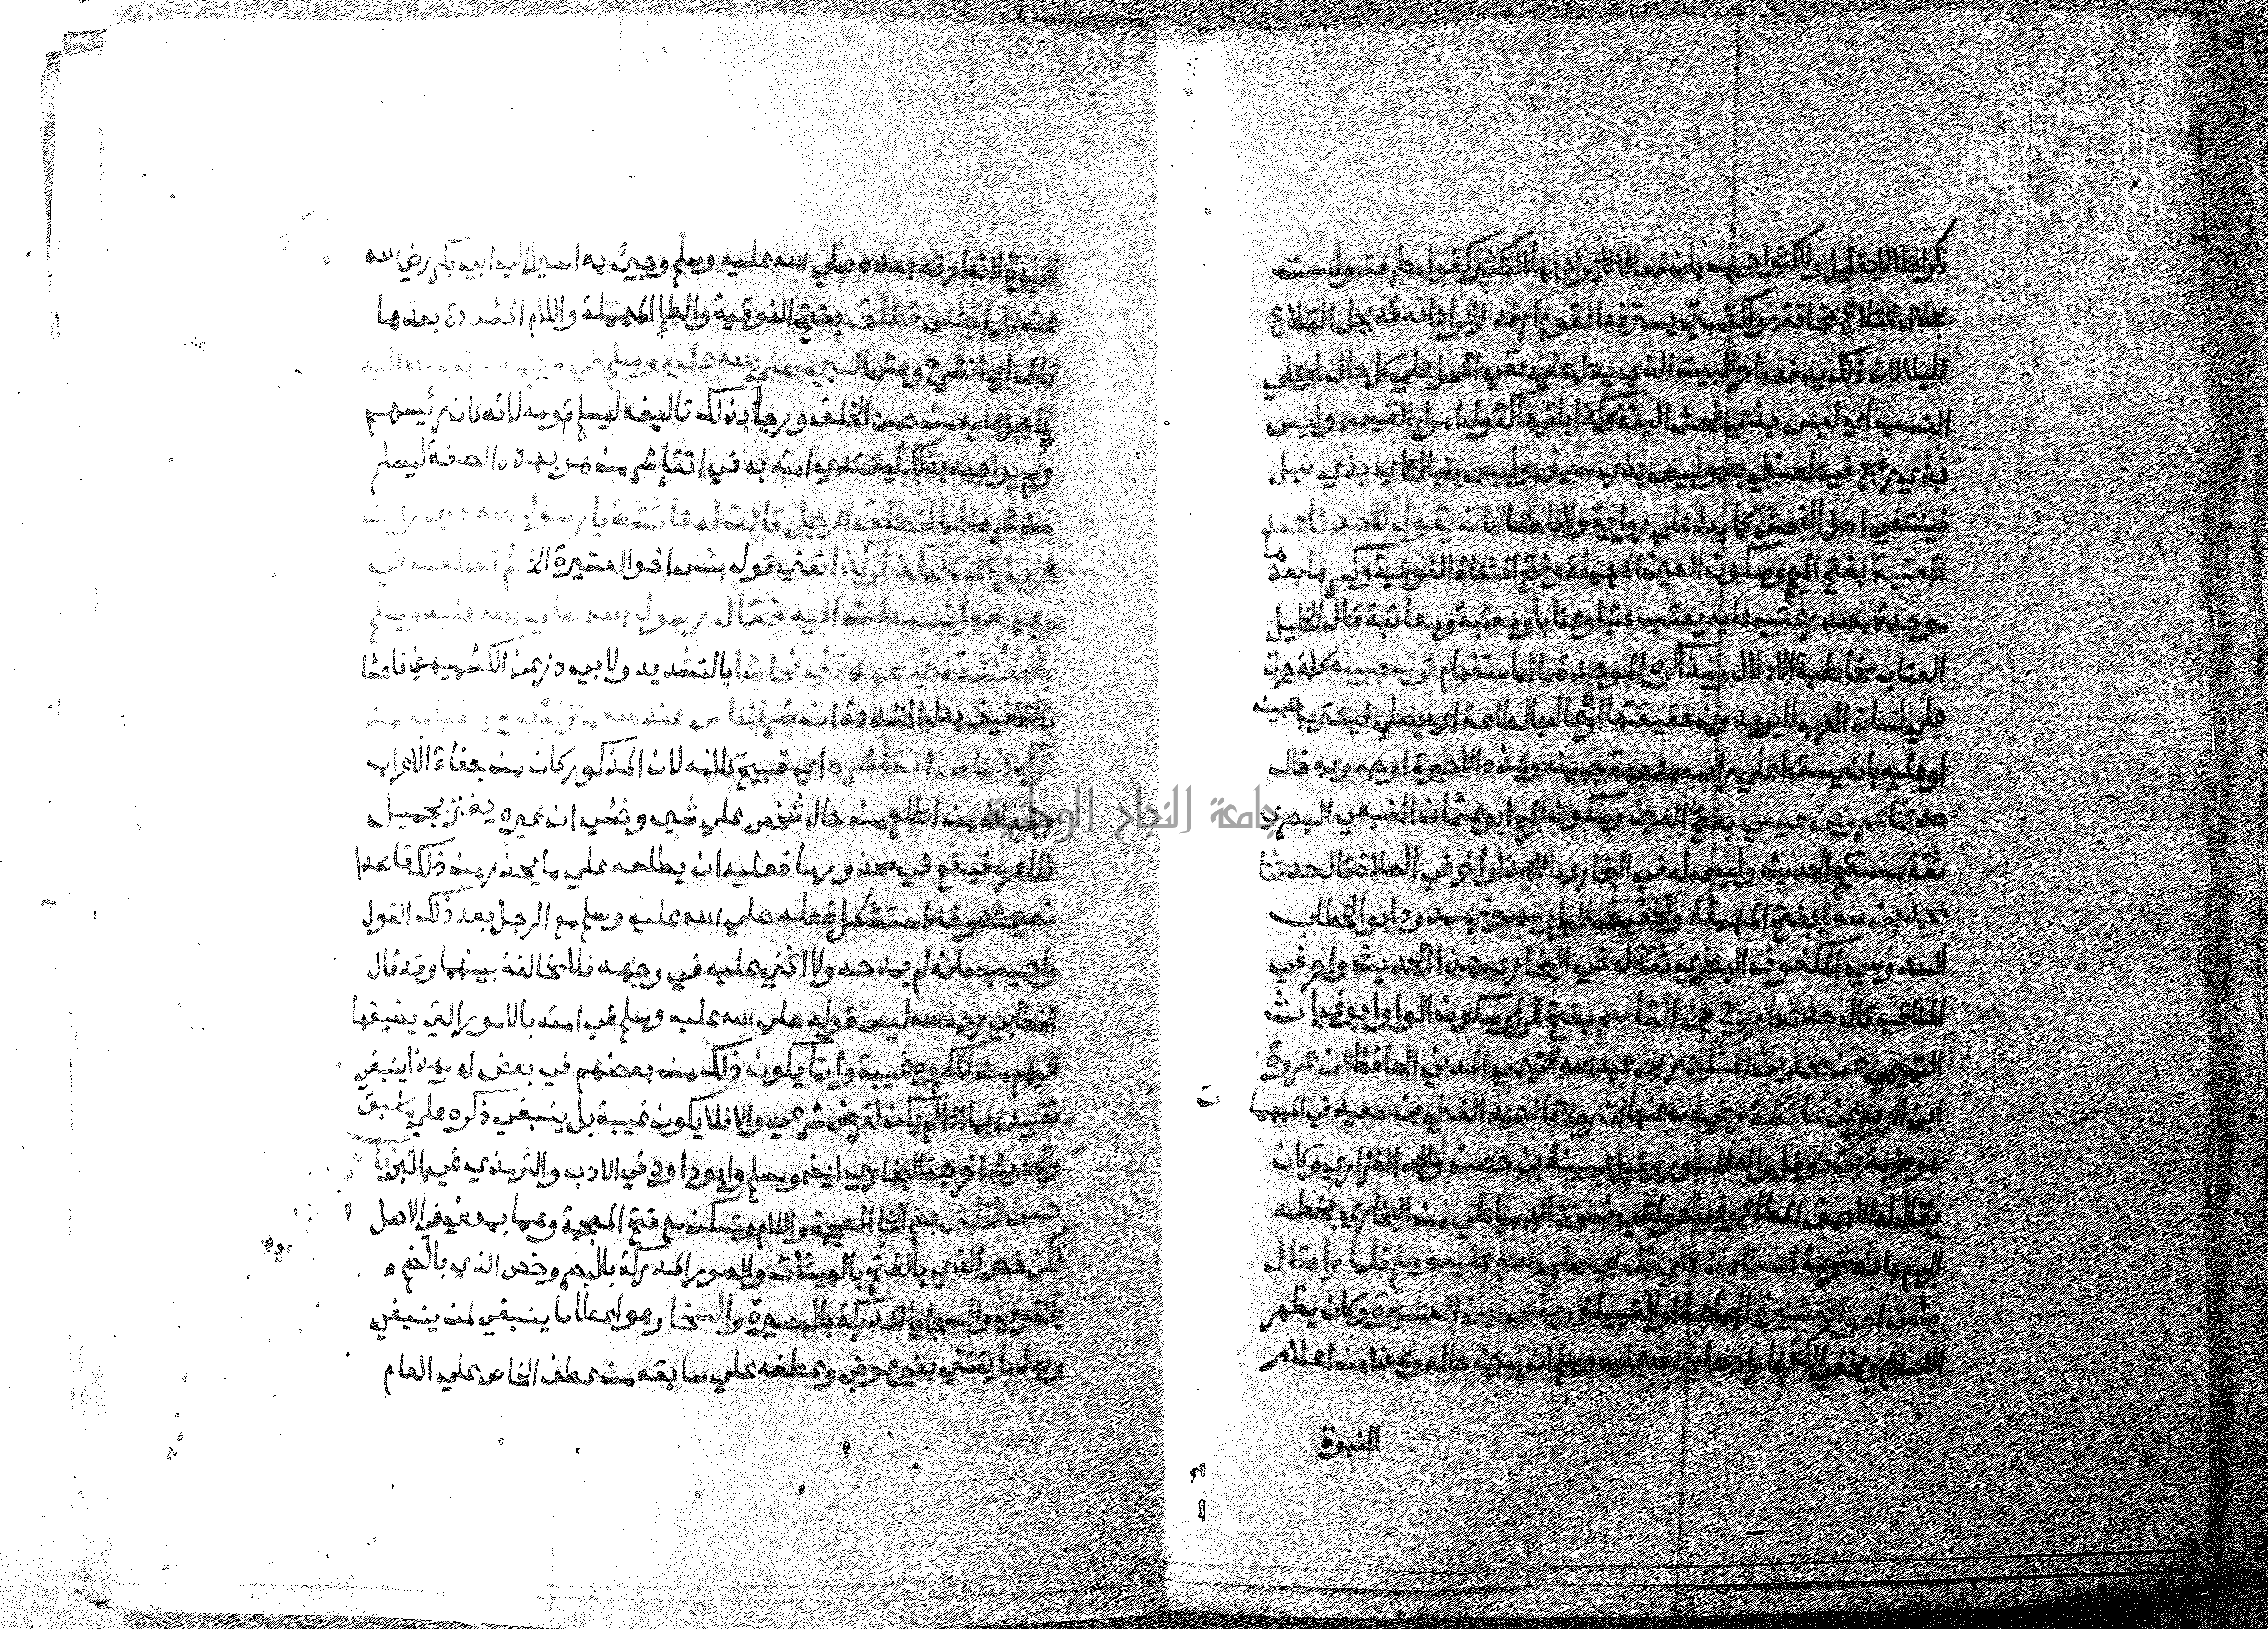 ذكر اصلا لا بقليل ولا كثير اجيب بان فعالا لا يراد بها التكثير كقول طرفة ولست
بحلال التلاع مخافة ولكن متي يسترفد القوم ارفد لا يراد انه قد يحل التلاع
قليلا لان ذلك يدفعه اخر البيت الذي يدل علي نفي المحل علي كل حال او علي
النسب اي ليس بذي فحش البتة وكذا باقيها كقول امراء القيس وليس
بذي رمح فيطعنني به وليس بذي سيف وليس بنبال اي بذي نبل
فينتفي اصل الفحش كما يدل علي رواية ولا فاحشا كان يقول لاحدنا عند
المعتبة بفتح الميم وسكون العين المهملة وفتح المثناة الفوقية وكسرها بعدها
موحدة مصدر عتب عليه يعتب عتبا وعتابا ومعتبة ومعاتبة قال الخليل
العتاب مخاطبة الادلال ومذاكرة الموجدة ماله استفهام ترب جبينه كلمة جرت
علي لسان العرب لا يريدون حقيقتها او دعا له بالطاعة اي يصلي فيتترب جبينه
او عليه بان يسقط علي راسه علي جهة جبينه وهذه الاخيرة اوجه وبه قال
حدثنا عمرو بن عيسي بفتح العين وسكون الميم ابو عثمان الضبعي البصري
ثقة مستقيم الحديث وليس له في البخاري الا هذا واخر في الصلاة قال حدثنا
محمد بن سوا بفتح المهملة وتخفيف الواو مهموز ممدود ابو الخطاب
السدوسي المكفوف البصري ثقة له في البخاري هذا الحديث واخر في
المناقب قال حدثنا روح بن القاسم بفتح الرا وسكون الواو ابو غياث
التميمي عن محمد بن المنكدر بن عبد الله التيمي المدني الحافظ عن عروة
ابن الزبير عن عائشة رضي الله عنها ان رجلا قال عبد الغني بن سعيد في المبهمات
هو مخرمة بن نوفل والد المسور وقيل عيينة بن حصن الفزاري وكان
يقال له الاحمق المطاع وفي حواشي نسخة الدمياطي من البخاري بخطه
الجزم بانه مخرمة استاذن علي النبي صلي الله عليه وسلم فلما راه قال
بئس اخو العشيرة الجماعة او القبيلة وبئس ابن العشيرة وكان يظهر
الاسلام ويخفي الكفر فاراد صلي الله عليه وسلم ان يبين حاله وهذا من اعلام
النبوة
النبوة لانه ارتد بعده صلي الله عليه وسلم وجيئ به اسيرا الي ابي بكر رضي الله
عنه فلما جلس تطلق بفتح الفوقية والطا المهملة واللام المشددة بعدها
قاف اي انشرح وهش النبي صلي الله عليه وسلم في وجهه وانبسط اليه
لما جبل عليه من حسن الخلق ورجا بذلك تاليفه ليسلم قومه لانه كان رئيسهم
ولم يواجهه بذلك ليقتدي امته به في اتقا شر من هو بهذه الصفة ليسلم
من شره فلما انطلق الرجل قالت له عائشة يا رسول الله حين رايت
الرجل قلت له كذا وكذا تعني قوله بئس اخو العشيرة الخ ثم تطلقت في
وجهه وانبسطت اليه فقال رسول الله صلي الله عليه وسلم
يا عائشة متي عهدتني فحاشا بالتشديد ولابي ذر عن الكشميهني فاحشا
بالتخفيف بدل المشددة ان شر الناس عند الله منزلة يوم القيامة من
تركه الناس اتقا شره اي قبيح كلامه لان المذكور كان من جفاة الاعراب
وفيه ان من اطلع من حال شخص علي شي وخشي ان غيره يغتر بجميل
ظاهره فيقع في محذور ما فعليه ان يطلعه علي ما يحذر من ذلك قاصدا
نصيحته وقد استشكل فعله صلي الله عليه وسلم مع الرجل بعد ذلك القول
واجيب بانه لم يمدحه ولا اثني عليه في وجهه فلا مخالفة بينهما وقد قال
الخطابي رحمه الله ليس قوله صلي الله عليه وسلم في امته بالامور التي يضيفها
اليهم من المكروه غيبة وانما يكون ذلك من بعضهم في بعض له وهذا ينبغي
تقييده بما اذا لم يكن لغرض شرعي والا فلا يكون غيبة بل ينبغي ذكره علي ما سبق
والحديث اخرجه البخاري ايضا ومسلم وابو داود في الادب والترمذي في البر باب
حسن الخلق بضم الخا المعجمة واللام وتسكن مع فتح المعجمة وهما بمعني في الاصل
لكن خص الذي بالفتح بالهيئات والصور المدركة بالبصر وخص الذي بالضم
بالقوي والسجايا المدركة بالبصيرة والسخا وهو اعطا ما ينبغي لمن ينبغي
وبذل ما يقتني بغير عوض وعطفه علي سابقه من عطف الخاص علي العام
جامعة النجاح الو